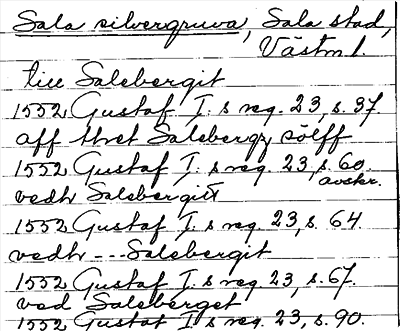 Sala silvergruva, Sala stad,
Västml.
till Salebergit
1552 Gustaf I:s reg. 23, s. 37.
aff thet Salebergz sölff
1552 Gustaf I:s reg. 23, s. 60.
avskr.
vedh Salebergit
1552 Gustaf I:s reg. 23, s. 64
vedh --- Salebergit
1552 Gustaf I:s reg. 23, s. 67.
ved Saleberget
1552 Gustaf I:s reg. 23, s. 90.